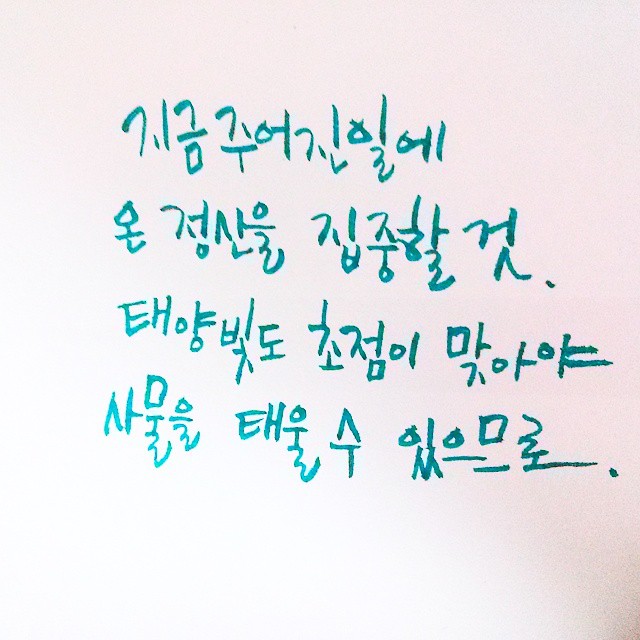 지금 주어진 일에
온 정신을 집중할 것.
태양빛도 초점이 맞아야
사물을 태울 수 있으므로.